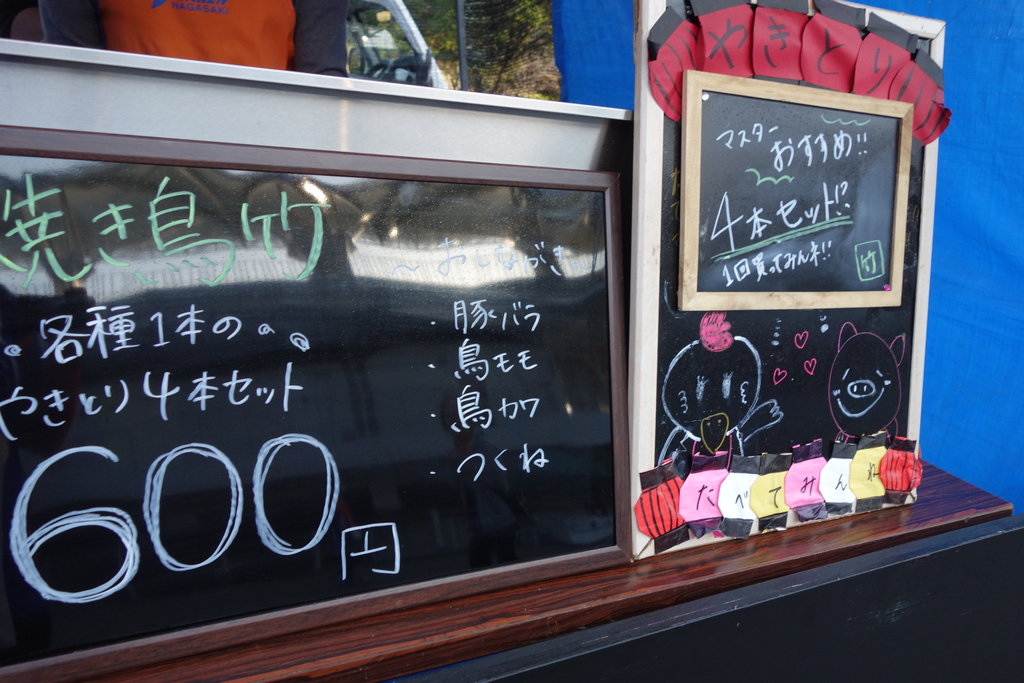 NAGASAKI
焼き鳥 竹
各種1本の
やきとり4本セット
600円
～おしながき～
・豚バラ
・鳥モモ
・鳥カワ
・つくね
やきとり
マスター
おすすめ!!
4本セット!?
1回買ってみんネ!!
竹
たべてみんね